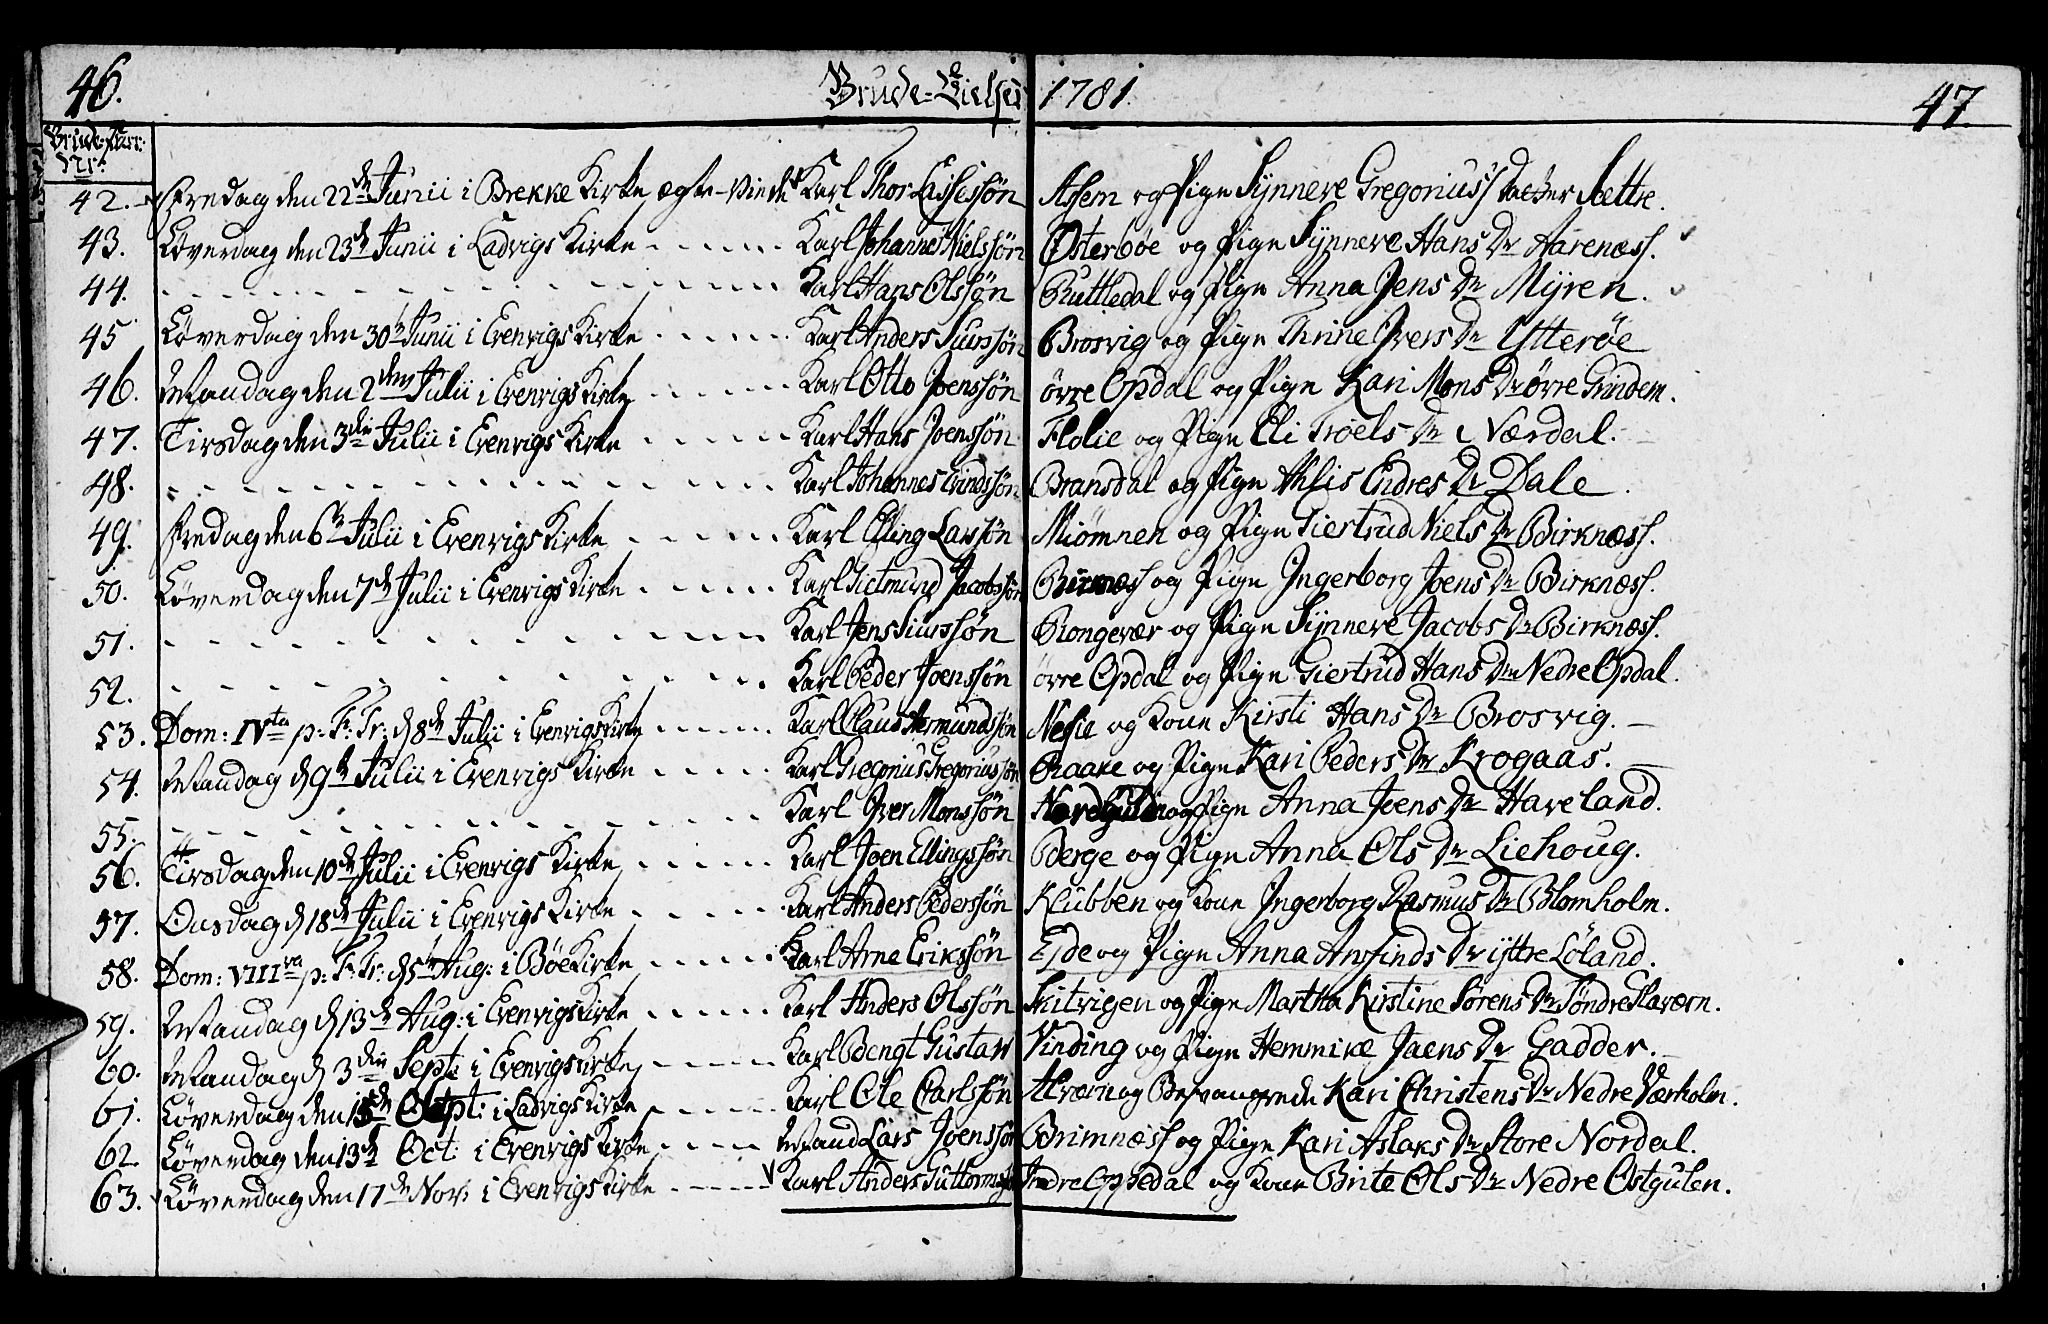 46. Brude-Vielser 1781. 47.
Brude-Parr: Nr.
42. Fredag den 22de Junii i Brekke Kirke ægte-viede Karl Thor Lassessøn Asem og Pige Synneve Gregoriuss Datter Sættre.
43. Løverdag den 23de Junii i Ladvigs Kirke - - - - - Karl Johannes Nielssøn Østerbøe og Pige Synneve Hans Dr Aarenæss.
44. - - - - - Karl Hans Olssøn Ruttledal og Pige Anna Jens Dr Myren.
45 Løverdag den 30te Junii i Evenvigs Kirke - - - - - Karl Anders Siurssøn Brosvig og Pige Thrine Ivers Dr Ytterøe
46. Mandag den 2den Julii i Evenvigs Kirke - - - - - Karl Otto Joenssøn øvre Opdal og Pige Kari Mons Dr øvre Grindem.
47. Tirsdag den 3die Julii i Evenvigs Kirke - - - - - Karl Hans Joenssøn Flolie og Pige Eli Troels Dr Nærdal.
48. - - - - - Karl Johannes Erindssøn Bransdal og Pige Ahlis Endres Dr Dale.
49. Fredag den 6te Julii i Evenvigs Kirke - - - - - Karl Elling Larssøn Miømnen og Pige Giertrud Niels Dr Birknæss.
50. Løverdag den 7de Julii i Evenvigs Kirke - - - - - Karl Sietmund Jacobssøn Birknæss og Pige Ingerborg Joens Dr Birknæss.
51. - - - - - Karl Jens Siurssøn Rongevær og Pige Synneve Jacobs Dr Birknæss.
52. - - - - - Karl Peder Joenssøn øvre Opdal og Pige Giertrud Hans Dr Nedre Opdal.
53. Dom: IVta p: F: Tr: d 8de Julii i Evenvigs Kirke - - - - - Karl Claus Asmundssøn Nesie og Kone Kirsti Hans Dr Brosvig.
54. Mandag d 9de Julii i Evenvigs Kirke - - - - - Karl Gregorius Gregoriussøn Raake og Pige Kari Peders Dr Krogaas.
55. - - - - - Karl Iver Monssøn Nordgulen og Pige Anna Joens Dr Haveland.
56. Tirsdag den 10de Julii i Evenvigs Kirke - - - - - Karl Joen Ellingssøn Berge og Pige Anna Ols Dr Liehoug.
57. Onsdag d 18de Julii i Evenvigs Kirke - - - - - Karl Anders Pederssøn Klubben og Kone Ingerborg Rasmus Dr Blomholm.
58. Dom: VIIIva p: F: Tr: d 5te Aug: i Bøe Kirke - - - - - Karl Arne Erikssøn Eide og Pige Anna Arnfinds Dr yttre Løland.
59. Mandag d 13de Aug: i Evenvigs Kirke - - - - - Karl Anders Olssøn Skitvigen og Pige Martha Kirstine Sørens Dr Søndre Flaværn.
60. Mandag d 3die Sept: i Evenvigs Kirke - - - - - Karl Bengt Gustav Vinding og Pige Hemmike Jaens Dr Gadder.
61. Løverdag den 15de Sept: i Ladvigs Kirke - - - - - Karl Ole Carlssøn Alværn og Besvangrede Kari Christens Dr Nedre Værholm.
62. Løverdag den 13de Oct: i Evenvigs Kirke - - - - Mand Lars Joenssøn Brimnæss og Pige Kari Aslaks Dr Store Nordal.
63. Løverdag den 17de Nov: i Evenvigs Kirke - - - - Karl Anders Guttormssøn Indre Oppedal og Kone Brite Ols Dr Nedre Østgulen.